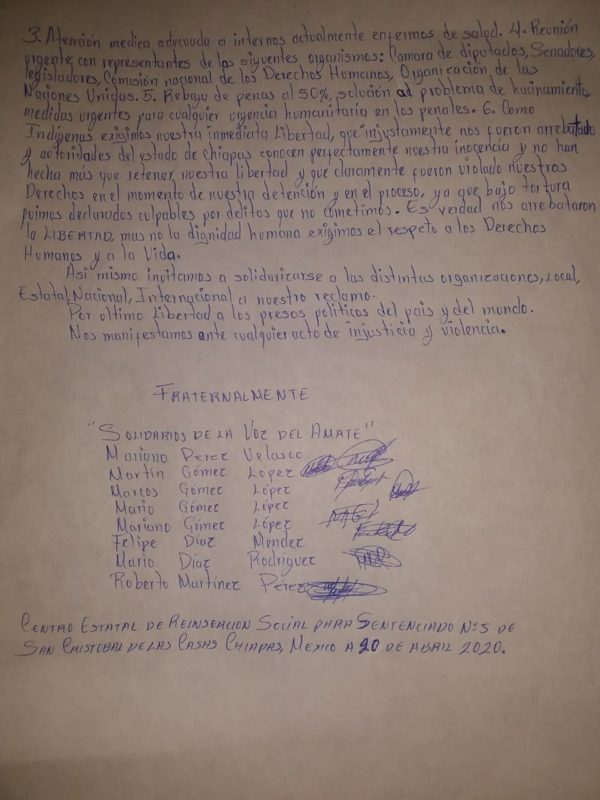 3. Atención medica adecuada a internos actualmente enfermos de salud. 4. Reunión
urgente con representantes de los siguentes organismos: Camara de diputados, Senadores,
legisladores, Comisión nacional de los Derechos Humanos, Organización de las
Naciones Unidas. 5. Rebajo de penas al 50%, solución al problema de hacinamiento
medidas urgentes para cualquier urgencia humanitaria en los penales. 6. Como
Indígenas exigimos nuestra inmediata Libertad, que injustamente nos fueron arrebatado
y autoridades del estado de Chiapas conocen perfectamente nuestra inocencia y no han
hecha más que retener nuestra libertad y que claramente fueron violado nuestros
Derechos en el momento de nuestra detención y en el proceso, ya que bajo tortura
fuimos declarados culpables por delitos que no cometimos. Es verdad nos arrebataron
la LIBERTAD, mas no la dignidad humana exigimos el respeto a los Derechos
Humanos y a la Vida.
Asi mismo invitamos a solidarizarse a las distintas organizaciones, Local,
Estatal, Nacional, Internacional a nuestro reclamo.
Por ultimo Libertad a los presos politicos del pais y del mundo.
Nos manifestamos ante cualquier acto de injusticia y violencia.
FRATERNALMENTE
"SOLIDARIOS DE LA VOZ DEL AMATE"
Mariano Perez Velasco
Martín Gómez López
Marcos Gómez López
Mario Gómez López
Mariano Gómez López
Felipe Díaz Mendez
Mario Díaz Rodríguez
Roberto Martínez Pérez
CENTRO ESTATAL DE REINSERCION SOCIAL PARA SENTENCIADO Nº5 DE
SAN CRISTOBAL DE LAS CASAS CHIAPAS, MEXICO A 20 DE ABRIL 2020.